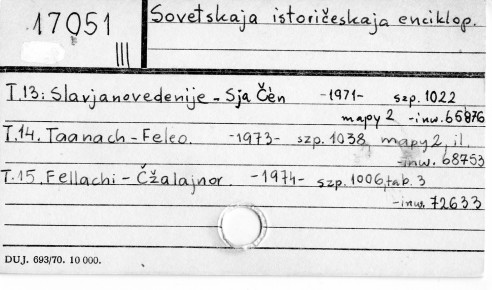 17051
III
Sovetskaja istoričeskaja enciklop.
T.13: Slavjanovedenije - Sja Čèn -1971- szp. 1022
mapy 2 -inw. 66876
T.14. Taanach - Feleo. -1973- szp. 1038, mapy 2, il.
-inw. 68753
T.15. Fellachi - Čžalajnor. -1974- szp. 1006, tab. 3
-inw. 72633
DUJ. 693/70. 10 000.